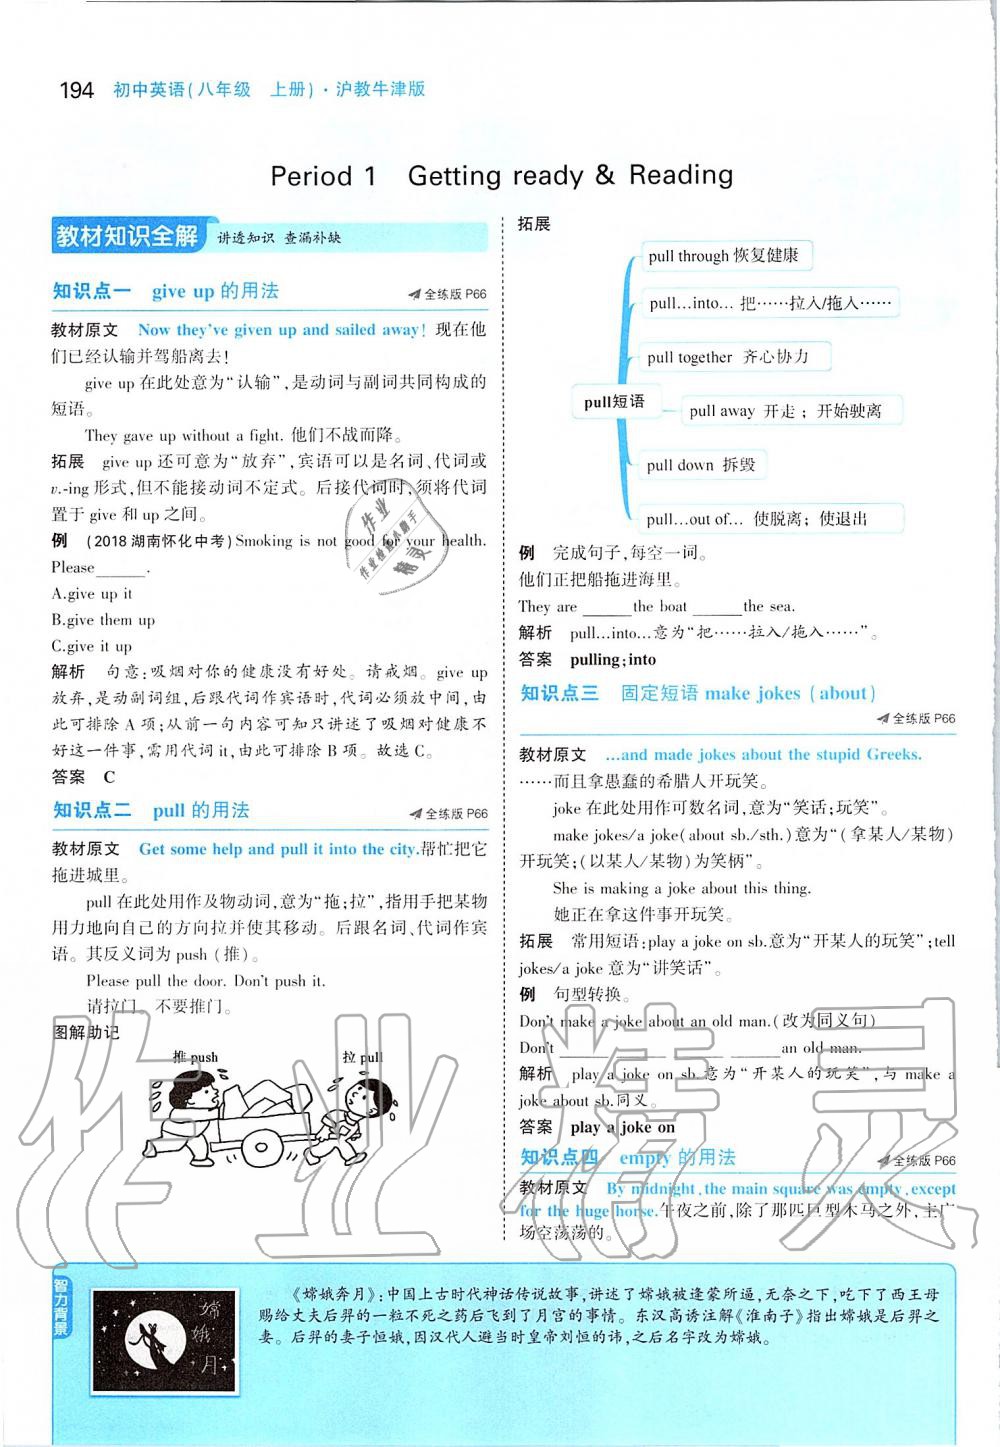 194 初中英语(八年级 上册)·沪教牛津版
Period 1 Getting ready & Reading
教材知识全解 讲透知识 查漏补缺
知识点一 give up 的用法 全练版 P66
教材原文 Now they've given up and sailed away! 现在他
们已经认输并驾船离去!
give up 在此处意为“认输”,是动词与副词共同构成的
短语。
They gave up without a fight. 他们不战而降。
拓展 give up 还可意为“放弃”,宾语可以是名词、代词或
v.-ing 形式,但不能接动词不定式。后接代词时,须将代词
置于 give 和 up 之间。
例 (2018 湖南怀化中考) Smoking is not good for your health.
Please______.
A.give up it
B.give them up
C.give it up
解析 句意:吸烟对你的健康没有好处。请戒烟。give up
放弃,是动副词组,后跟代词作宾语时,代词必须放中间,由
此可排除 A 项;从前一句内容可知只讲述了吸烟对健康不
好这一件事,需用代词 it,由此可排除 B 项。故选 C。
答案 C
知识点二 pull 的用法 全练版 P66
教材原文 Get some help and pull it into the city.帮忙把它
拖进城里。
pull 在此处用作及物动词,意为“拖;拉”,指用手把某物
用力地向自己的方向拉并使其移动。后跟名词、代词作宾
语。其反义词为 push (推)。
Please pull the door. Don't push it.
请拉门。不要推门。
图解助记
推 push 拉 pull
拓展
pull短语
pull through 恢复健康
pull…into… 把……拉入/拖入……
pull together 齐心协力
pull away 开走;开始驶离
pull down 拆毁
pull…out of… 使脱离;使退出
例 完成句子,每空一词。
他们正把船拖进海里。
They are ______ the boat ______ the sea.
解析 pull…into…意为“把……拉入/拖入……”。
答案 pulling;into
知识点三 固定短语 make jokes (about)
全练版 P66
教材原文 …and made jokes about the stupid Greeks.
……而且拿愚蠢的希腊人开玩笑。
joke 在此处用作可数名词,意为“笑话;玩笑”。
make jokes/a joke(about sb./sth.)意为“(拿某人/某物)
开玩笑;(以某人/某物)为笑柄”。
She is making a joke about this thing.
她正在拿这件事开玩笑。
拓展 常用短语:play a joke on sb.意为“开某人的玩笑”;tell
jokes/a joke 意为“讲笑话”。
例 句型转换。
Don't make a joke about an old man.(改为同义句)
Don't ______ ______ ______ ______ an old man.
解析 play a joke on sb.意为“开某人的玩笑”,与 make a
joke about sb.同义。
答案 play a joke on
知识点四 empty 的用法 全练版 P66
教材原文 By midnight, the main square was empty, except
for the huge horse.午夜之前,除了那匹巨型木马之外,主广
场空荡荡的。
智力背景
嫦娥月
《嫦娥奔月》:中国上古时代神话传说故事,讲述了嫦娥被逢蒙所逼,无奈之下,吃下了西王母
赐给丈夫后羿的一粒不死之药后飞到了月宫的事情。东汉高诱注解《淮南子》指出嫦娥是后羿之
妻。后羿的妻子恒娥,因汉代人避当时皇帝刘恒的讳,之后名字改为嫦娥。
作业精灵